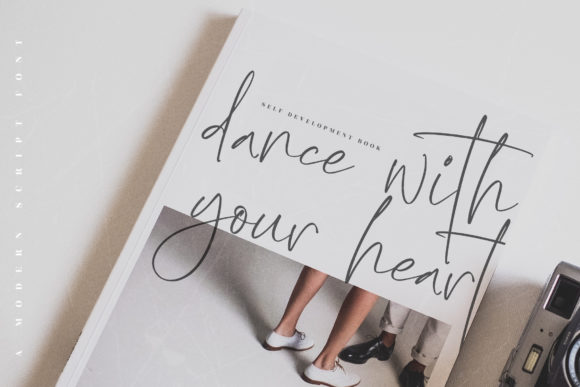 A MODERN SCRIPT FONT
SELF DEVELOPMENT BOOK
dance with
your heart